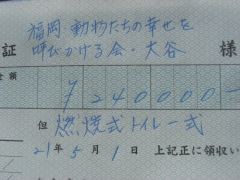 福岡 動物たちの幸せを
証 呼びかける会・大谷 様
金額 ¥240000-
但 燃焼式トイレ一式
21年5月1日 上記正に領収い